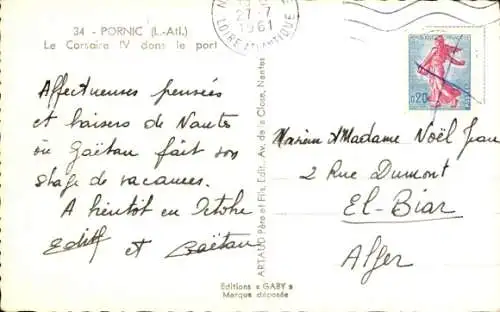 34 - PORNIC (L.-Atl.)
Le Corsaire IV dans le port
27-7
1961
LOIRE ATLANTIQUE
0,20
Affectueuses pensées
et baisers de Nantes
où Gaëtan fait son
stage de vacances.
A bientôt en Octobre
Edith et Gaëtan
ARTAUD Père et Fils, Edit., Av. de la Close, Nantes
Monsieur & Madame Noël Jean
2 Rue Dumont
El-Biar
Alger
Editions « GABY »
Marque déposée